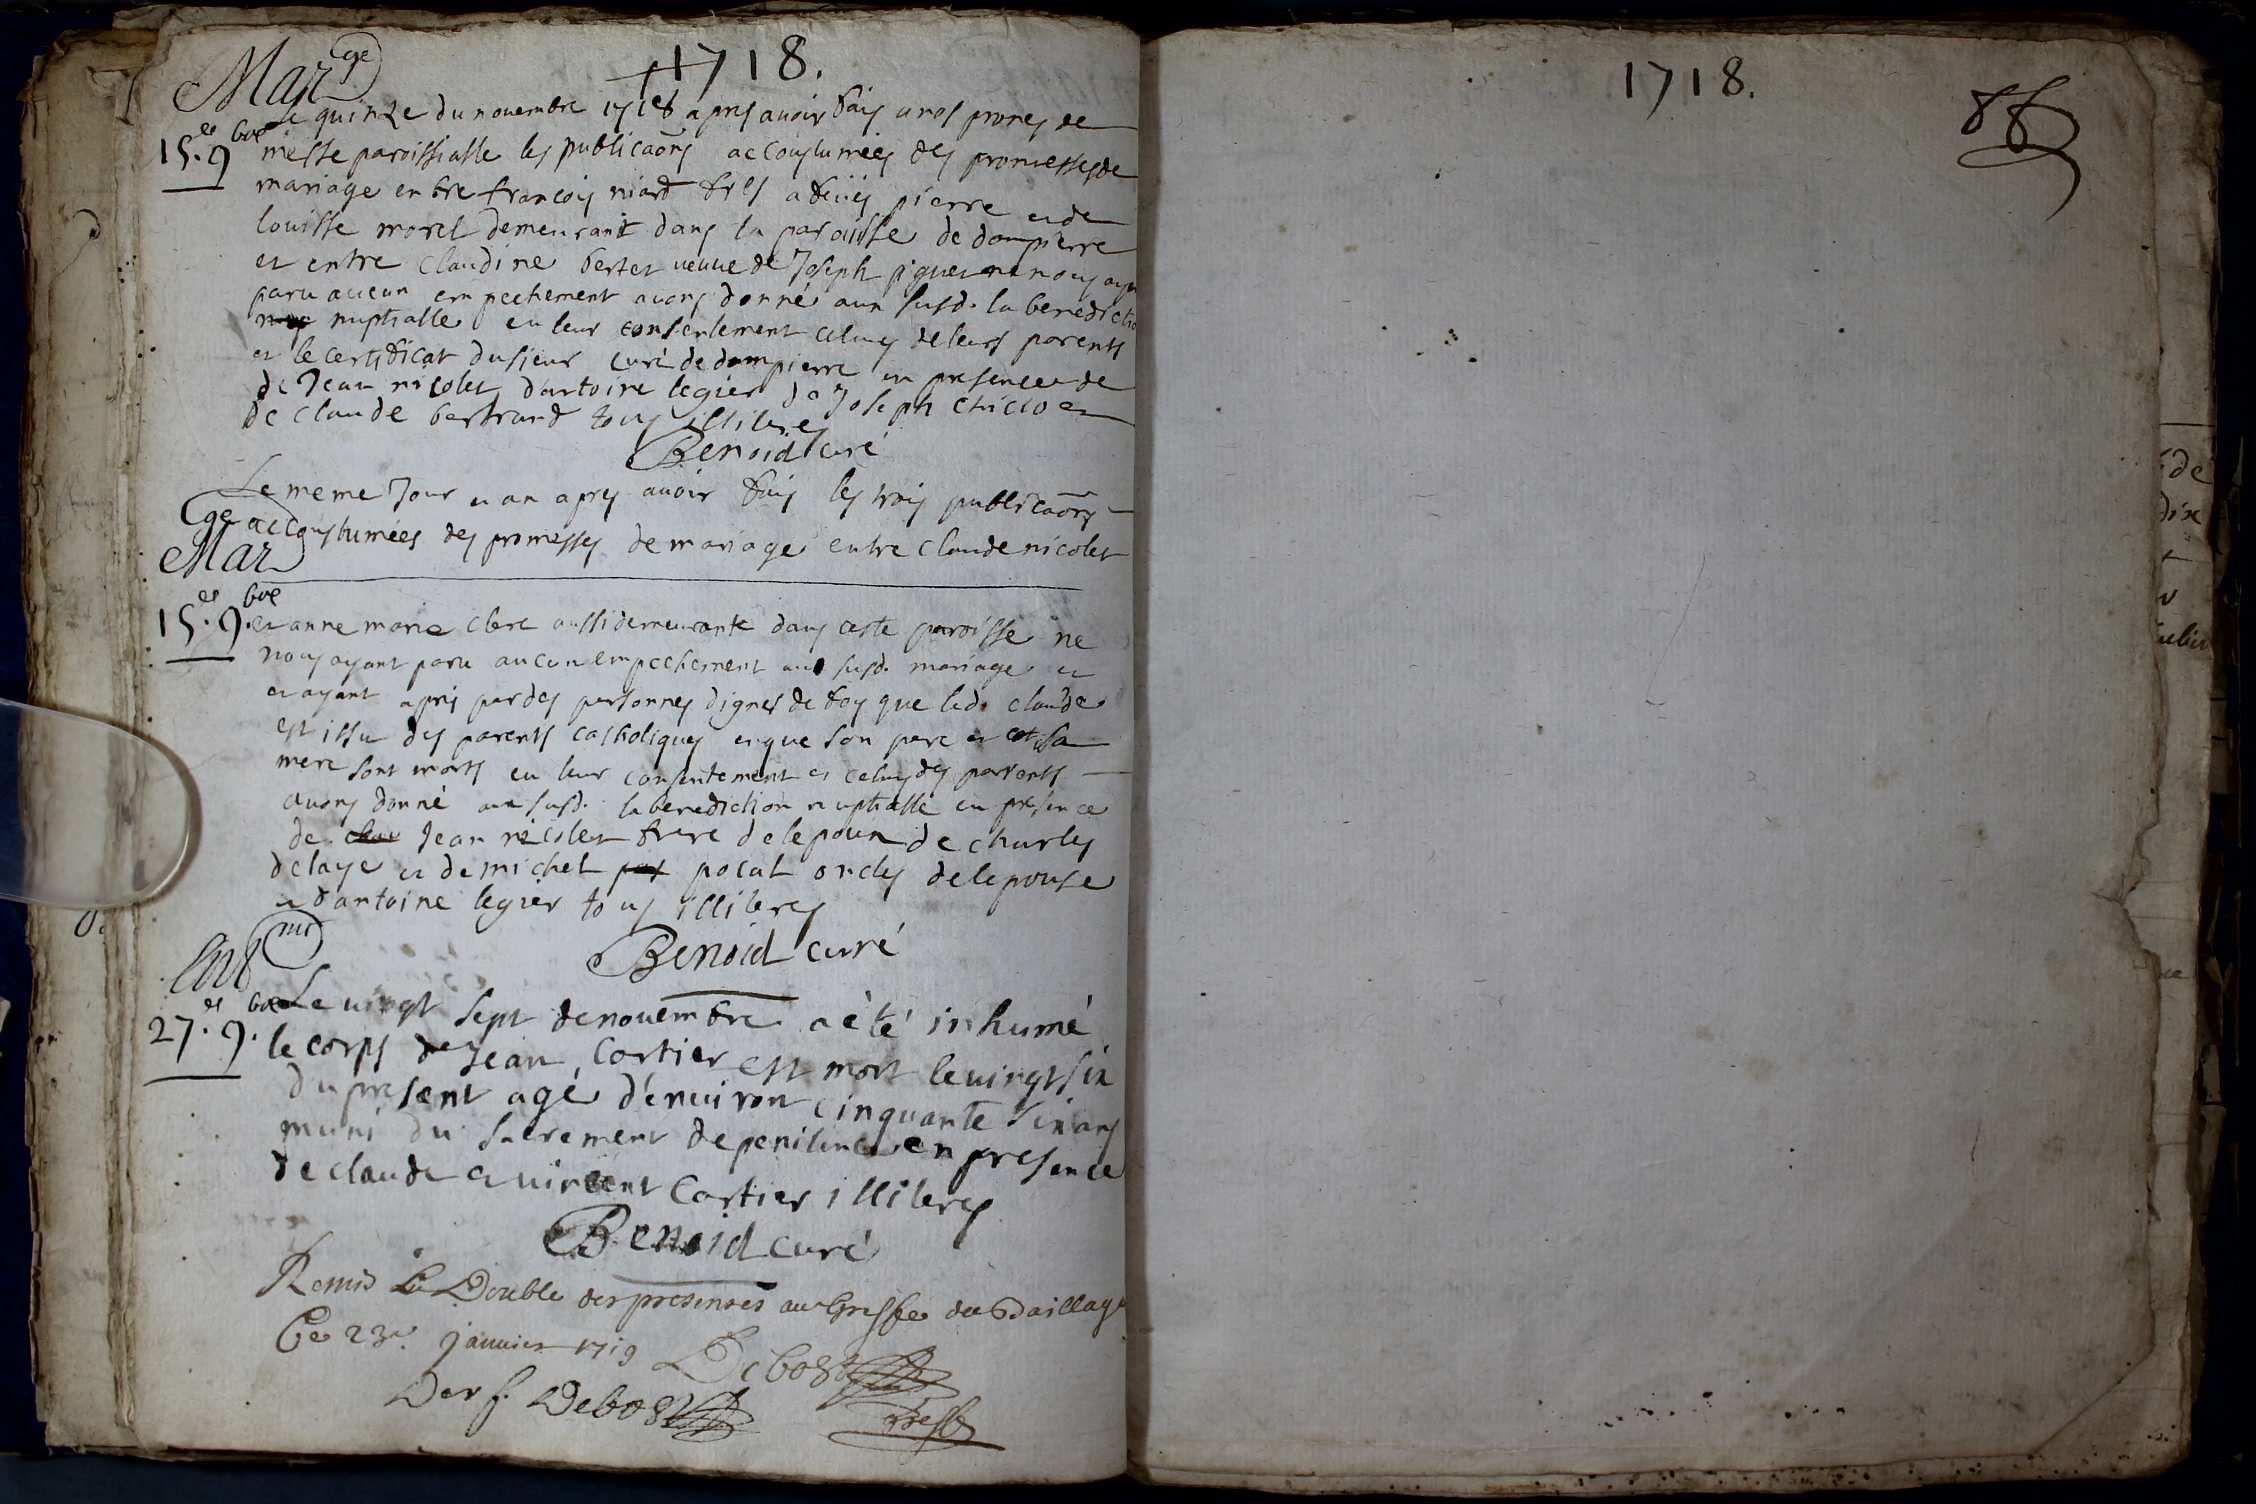 1718.
Marge
le quinze du novembre 1718 apres avoir fais a nos prones de
15.e 9bre messe paroissialle les publicaõns accoustumées des promesses de
mariage entre francois niard fils a feüe pierre et de
louisse morel demeurant dans la paroisse de dompierre
et entre claudine bertet veuve de Joseph piquet ne nous ayt
paru aucun empechement avons donné aux susd. la benedictio
nuptialle eu leur consentement celuy de leurs parents
et le certificat du sieur curé de dompierre en presence de
de Jean nicolet d'antoine legier de Joseph chicio et
de claude bertrand tous illiteres
Benoid curé
Le meme Jour et an apres avoir fais les trois publicaõns
Marge accoustumées des promesses de mariage entre claude nicolet
15.e 9.bre et anne marie clerc aussi demeurante dans ceste paroisse ne
nous ayant paru aucun empechement aux susd. mariage et
et ayant apris par des personnes dignes de foy que led. claude
est issu des parents catholiques et que son pere et sa
mere sont morts eu leur consentement et celuy des parents
avons donné aux susd. la benediction nuptialle en presence
de Jean nicolet frere de lepoux de charles
delaye et de michel pocat oncles de lepouse
et d'antoine legier tous illiteres
Benoid curé
Ent.mt
Le vingt sept de novembre a été inhumé
27.e 9.bre le corps de Jean Cortier est mort le vingt six
du present agé d'environ cinquante six ans
muni du sacrement de penitence en presence
de claude et vincent Cortier illiteres
Benoid curé
Remis Le Double des presentes au Greffe du Baillage
Ce 23e. Janvier 1719 Debost
Debost
1718.
86